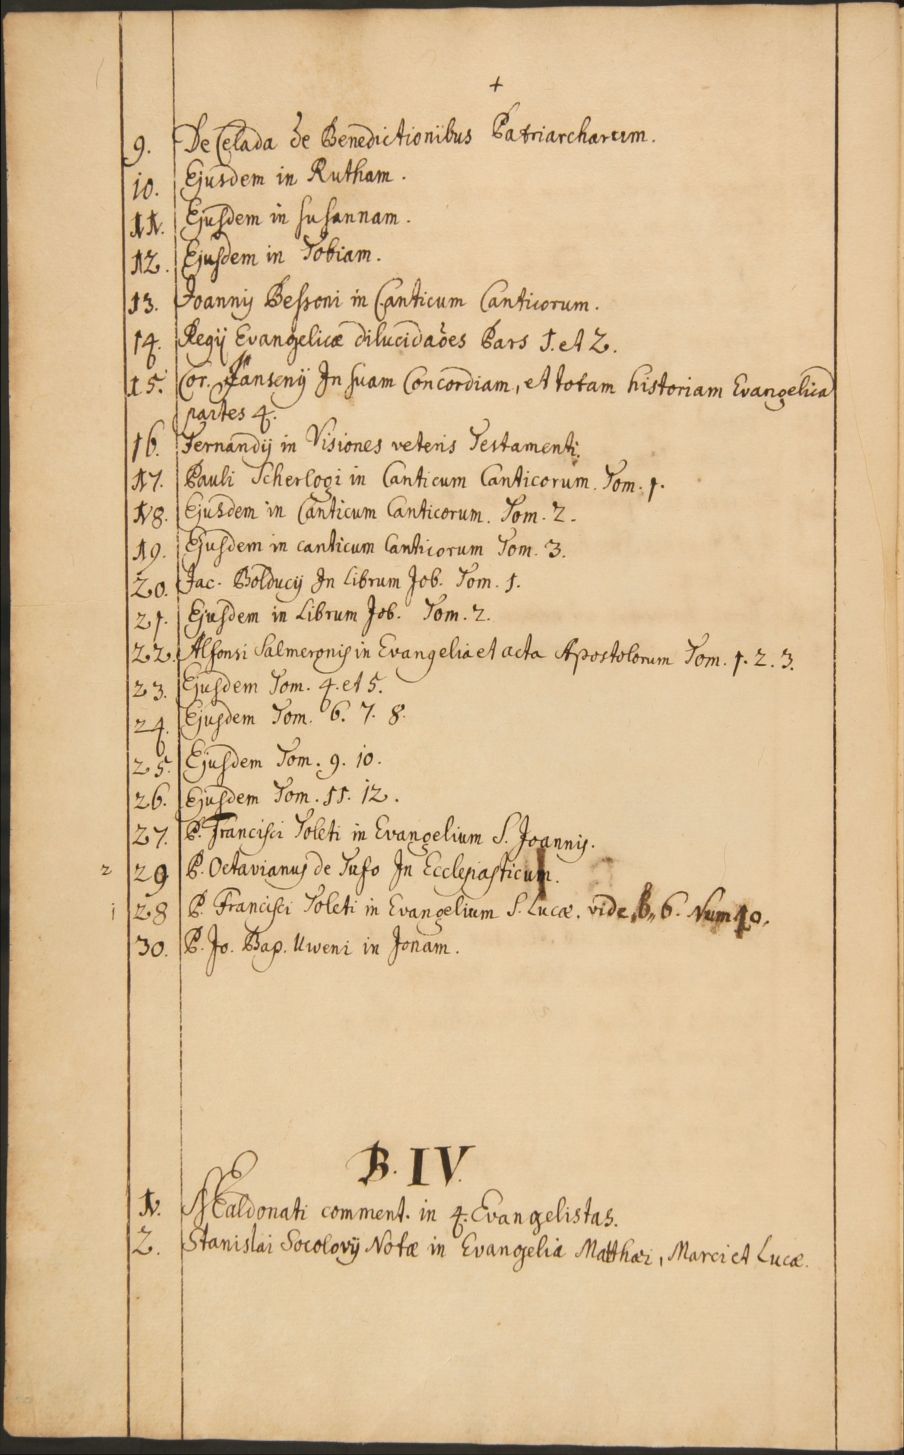 +
9. De Celada de Benedictionibus Patriarcharum.
10. Ejusdem in Rutham.
11. Ejusdem in Susannam.
12. Ejusdem in Tobiam.
13. Joannis Bessoni in Canticum Canticorum.
14. Regij Evangelicæ dilucidaões Pars 1. et 2.
15. Cor. Jansenij In suam Concordiam, et totam historiam Evangelicã
partes 4.
16. Fernandij in Visiones veteris Testamenti.
17. Pauli Scherlogi in Canticum Canticorum. Tom. 1.
18. Ejusdem in Canticum Canticorum. Tom. 2.
19. Ejusdem in canticum Canticorum Tom. 3.
20. Jac. Bolducij In Librum Job. Tom. 1.
21. Ejusdem in Librum Job. Tom. 2.
22. Alfonsi Salmeronis in Evangelia et acta Apostolorum Tom. 1. 2. 3.
23. Ejusdem Tom. 4. et 5.
24. Ejusdem Tom. 6. 7. 8.
25. Ejusdem Tom. 9. 10.
26. Ejusdem Tom. 11. 12.
27. P. Francisci Toleti in Evangelium S. Joannis.
2 29 P. Octavianus de Tufo In Ecclesiasticum.
1 28 P. Francisci Toleti in Evangelium S. Lucæ. vide B. 6. Num 40.
30. P. Jo. Bap. Uweni in Jonam.
B. IV.
1. Maldonati comment. in 4. Evangelistas.
2. Stanislai Socolovij Notæ in Evangelia Matthæi, Marci et Lucæ.